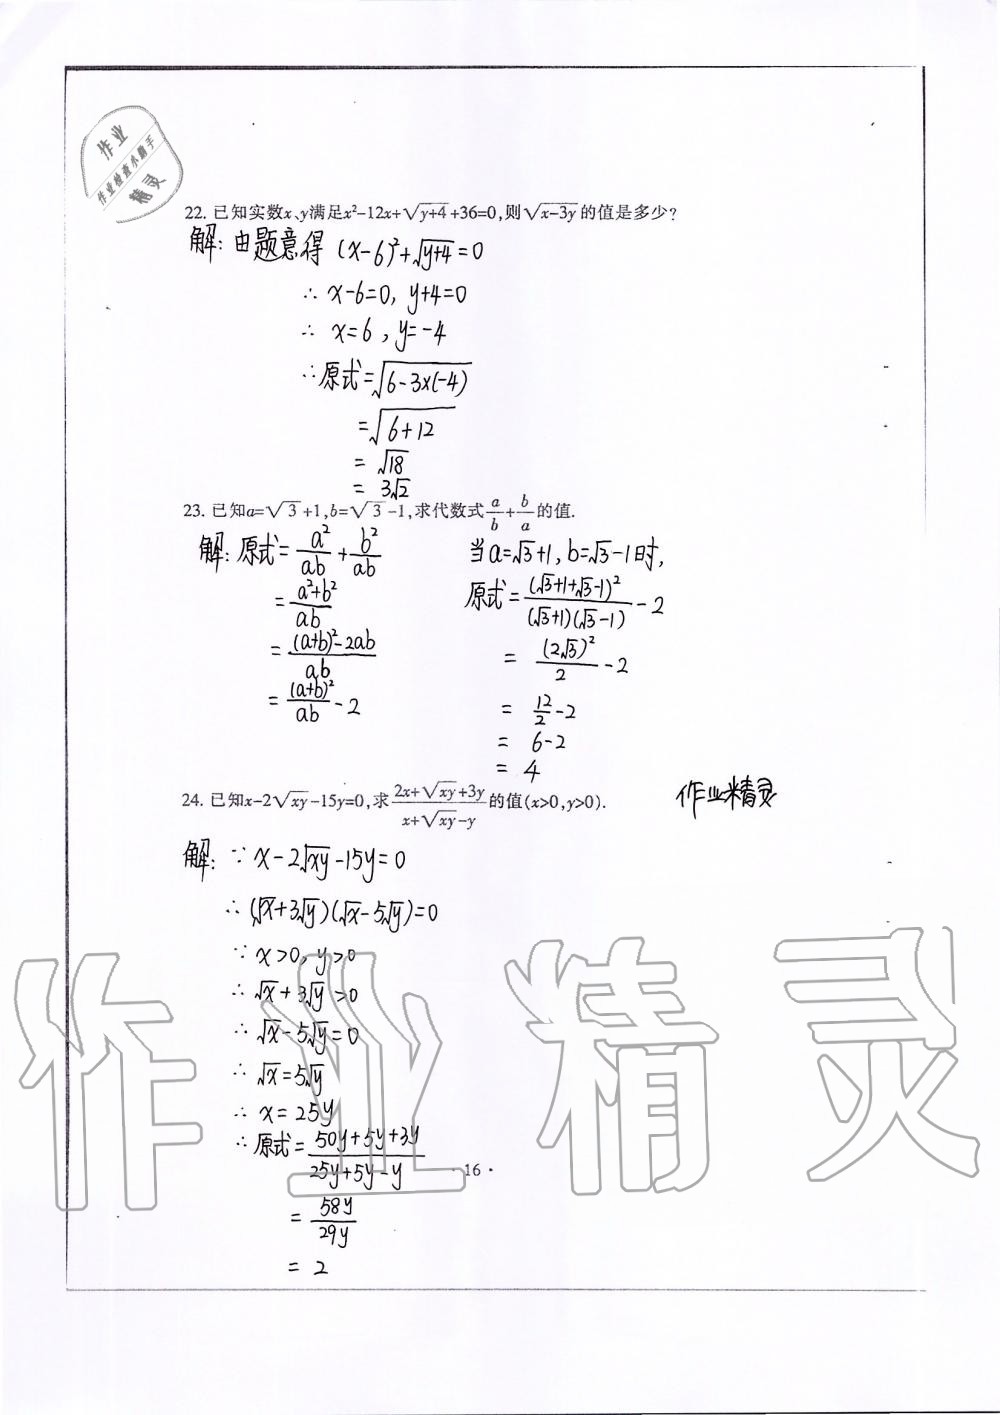 作业
作业检查小助手
精灵
22. 已知实数x、y满足x²-12x+√(y+4)+36=0,则√(x-3y)的值是多少?
解: 由题意得 (x-6)²+√(y+4)=0
∴ x-6=0, y+4=0
∴ x=6, y=-4
∴原式=√(6-3×(-4))
=√(6+12)
=√18
=3√2
23. 已知a=√3+1,b=√3-1,求代数式a/b+b/a的值.
解: 原式=a²/ab+b²/ab
=(a²+b²)/ab
=((a+b)²-2ab)/ab
=(a+b)²/ab-2
当a=√3+1, b=√3-1时,
原式=(√3+1+√3-1)²/((√3+1)(√3-1))-2
=(2√3)²/2-2
=12/2-2
=6-2
=4
作业精灵
24. 已知x-2√(xy)-15y=0,求(2x+√(xy)+3y)/(x+√(xy)-y)的值(x>0,y>0).
解: ∵ x-2√(xy)-15y=0
∴ (√x+3√y)(√x-5√y)=0
∵ x>0, y>0
∴ √x+3√y>0
∴ √x-5√y=0
∴ √x=5√y
∴ x=25y
∴ 原式=(50y+5y+3y)/(25y+5y-y)
=58y/29y
=2
· 16 ·
作业精灵